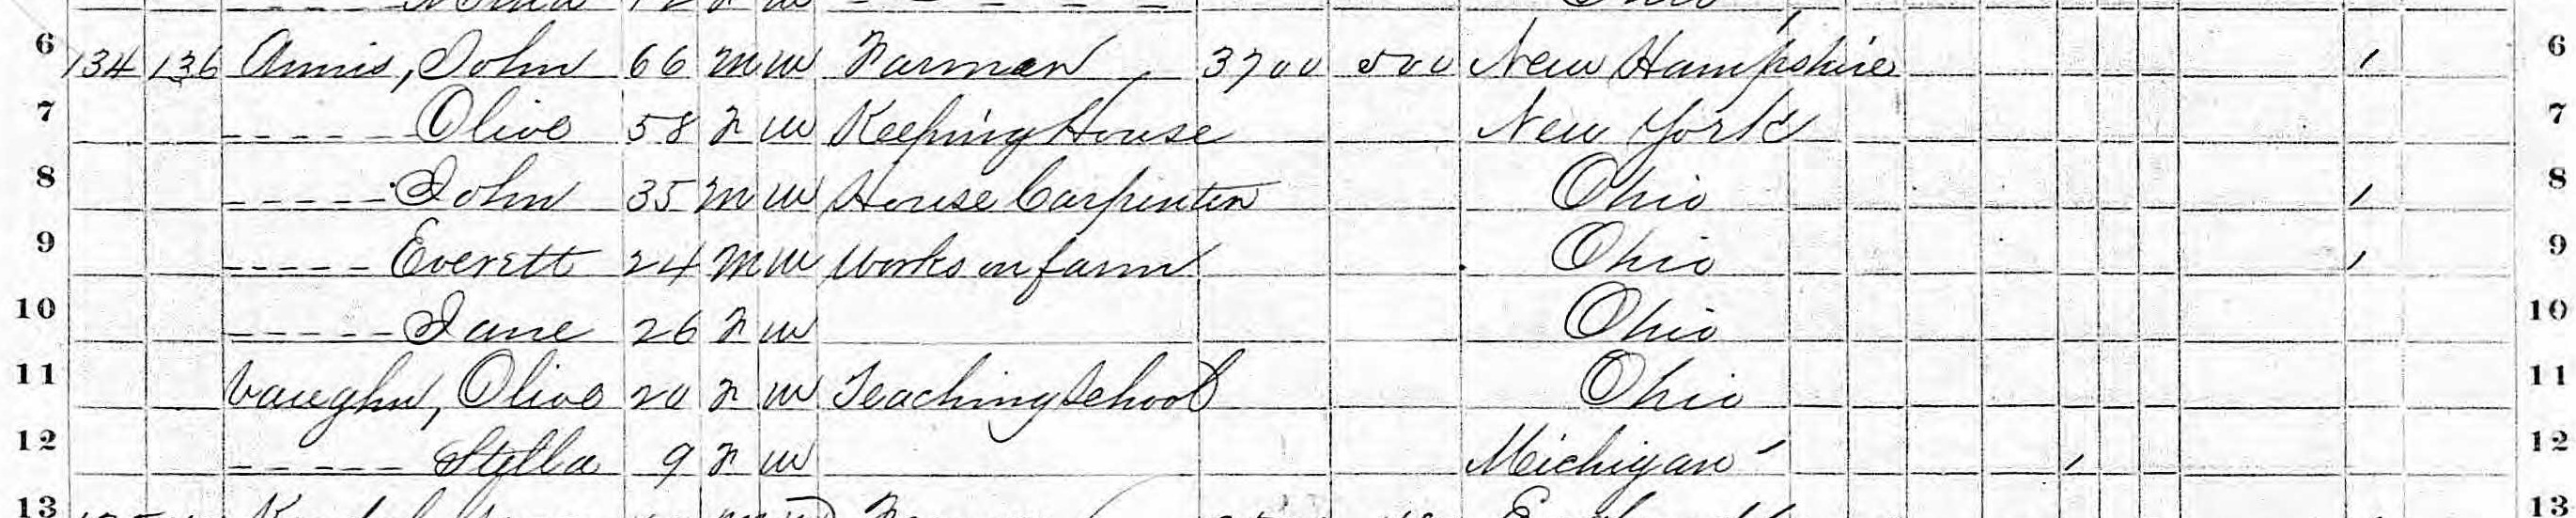 6 134 136 Annis, John 66 M W Farmer 3700 500 New Hampshire / 6
7 - - - - - Olive 58 F W Keeping House New York 7
8 - - - - - John 35 M W House Carpenter Ohio / 8
9 - - - - - Everett 24 M W Works on farm Ohio / 9
10 - - - - - Jane 26 F W Ohio 10
11 Vaughn, Olive 20 F W Teaching School Ohio 11
12 - - - - - Stella 9 F W Michigan / 12
13 13